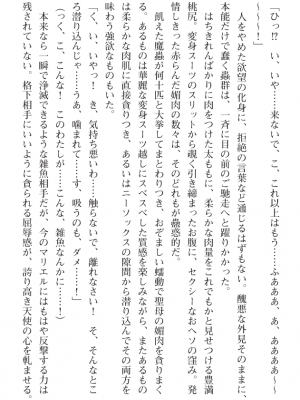 「ひっ!? い、いや……来ないで、こ、これ以上はもう……ふあああ、あ、ああああ～
～～～!」
　人をやめた欲望の化身に、拒絶の言葉など通じるはずもない。醜悪な外見そのままに、
本能だけで蠢く蟲群は、一斉に目の前のご馳走へと躍りかかった。
　はちきれんばかりに肉をつけた太ももに、柔らかな肉量をこれでもかと見せつける豊満
桃尻。変身スーツのスリットから覗く引き締まったお腹に、セクシーなおヘソの窪み。発
情しきった赤らんだ媚肉の数々は、そのどれもが蠱惑的だ。
　飢えた魔蟲が何十匹と大挙してまとわりつき、おぞましい蠕動で聖母の媚肉を貪りまく
る。あるものは華麗な変身スーツ越しにスベスベした質感を楽しみながら、またあるもの
は柔らかな肉肌に直接貪りつき、あるいはニーソックスの隙間から潜り込んでその両方を
味わう強欲なものもいた。
「く、い、いやっ! き、気持ち悪いわ……触らないで、離れなさい! そ、そんなとこ
ろ潜り込んじゃ……うあ、噛まれて……す、吸うのも、ダメ……!」
(っく、こ、こんな! このわたしが……こんな、雑魚なんかに……!)
　本来なら一瞬で浄滅できるような雑魚相手だが、今のマリエルにはもはや反撃する力は
残されていない。格下相手にいいように貪られる屈辱感が、誇り高き天使の心を軋ませる。